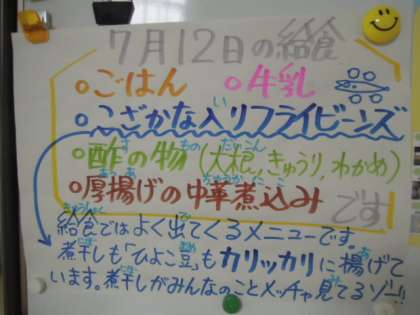 7月12日の給食
○ごはん ○牛乳
○こざかな入りフライビーンズ
○酢の物(大根、きゅうり、わかめ)
○厚揚げの中華煮込み
です
給食ではよく出てくるメニューです。
煮干しも「ひよこ豆」もカリッカリに揚げて
います。煮干しがみんなのことメッチャ見てるゾー!!